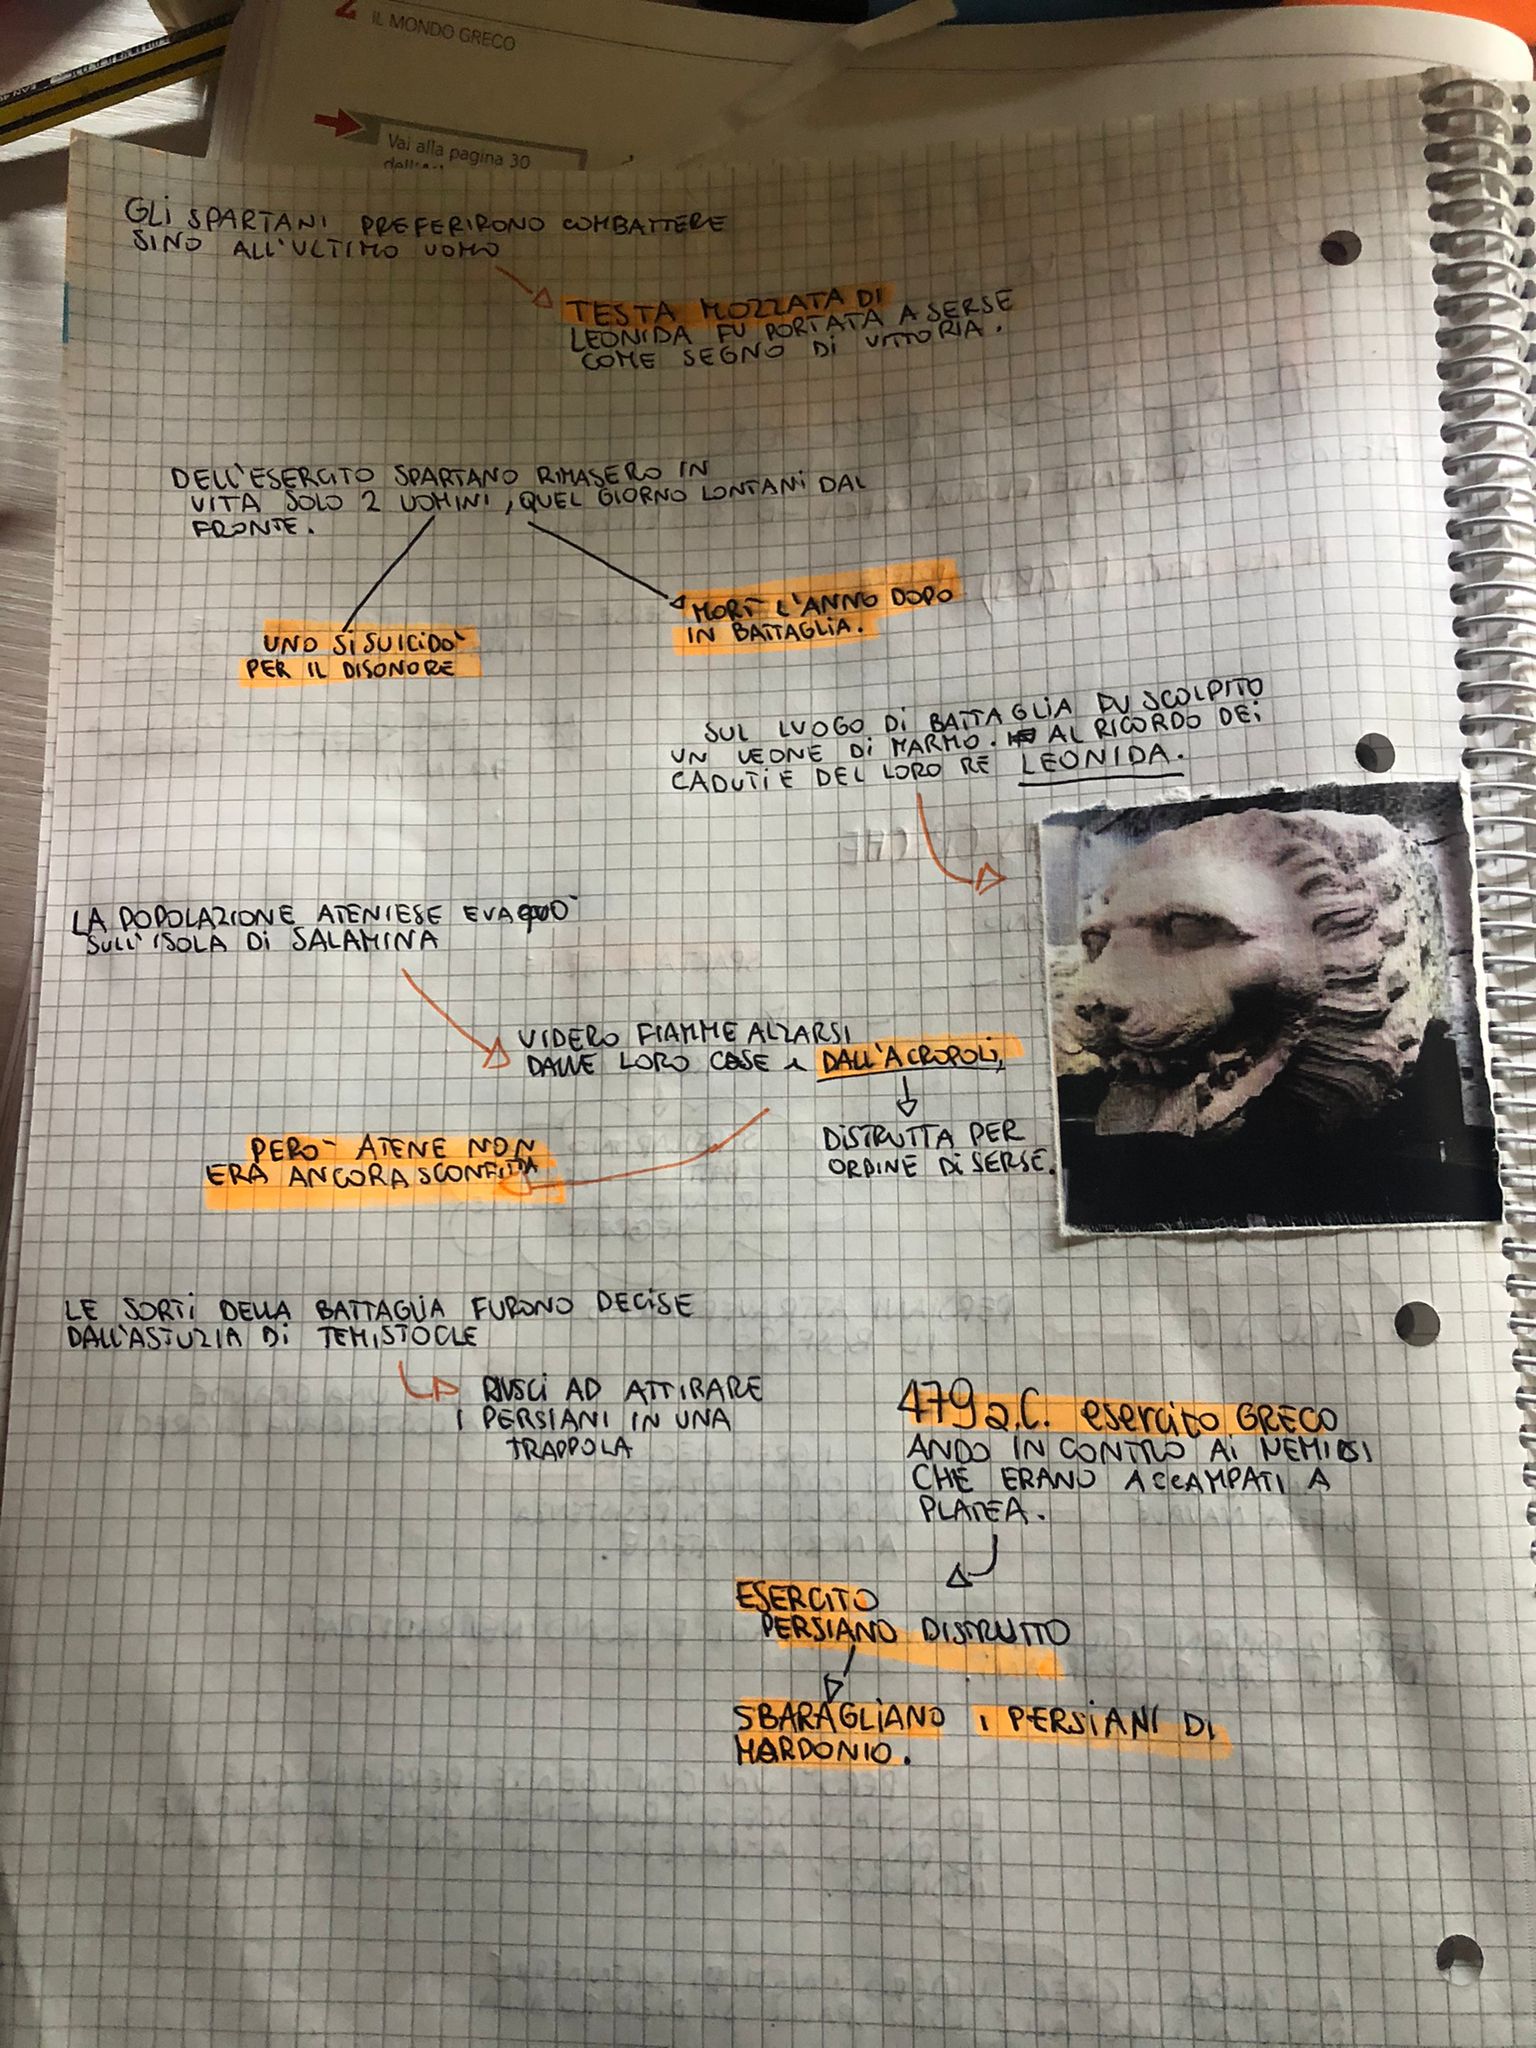 2 IL MONDO GRECO
Vai alla pagina 30
GLI SPARTANI PREFERIRONO COMBATTERE
SINO ALL'ULTIMO UOMO
TESTA MOZZATA DI
LEONIDA FU PORTATA A SERSE
COME SEGNO DI VITTORIA.
DELL'ESERCITO SPARTANO RIMASERO IN
VITA SOLO 2 UOMINI, QUEL GIORNO LONTANI DAL
FRONTE.
UNO SI SUICIDO'
PER IL DISONORE
MORÌ L'ANNO DOPO
IN BATTAGLIA.
SUL LUOGO DI BATTAGLIA FU SCOLPITO
UN LEONE DI MARMO. AL RICORDO DEI
CADUTI E DEL LORO RE LEONIDA.
LA POPOLAZIONE ATENIESE EVAQUO'
SULL'ISOLA DI SALAMINA
VIDERO FIAMME ALZARSI
DALLE LORO CASE e DALL'ACROPOLI,
DISTRUTTA PER
ORDINE DI SERSE.
PERO' ATENE NON
ERA ANCORA SCONFITTA
LE SORTI DELLA BATTAGLIA FURONO DECISE
DALL'ASTUZIA DI TEMISTOCLE
RIUSCI AD ATTIRARE
I PERSIANI IN UNA
TRAPPOLA
479 a.C. esercito GRECO
ANDO IN CONTRO AI NEMICI
CHE ERANO ACCAMPATI A
PLATEA.
ESERCITO
PERSIANO DISTRUTTO
SBARAGLIANO i PERSIANI DI
MARDONIO.